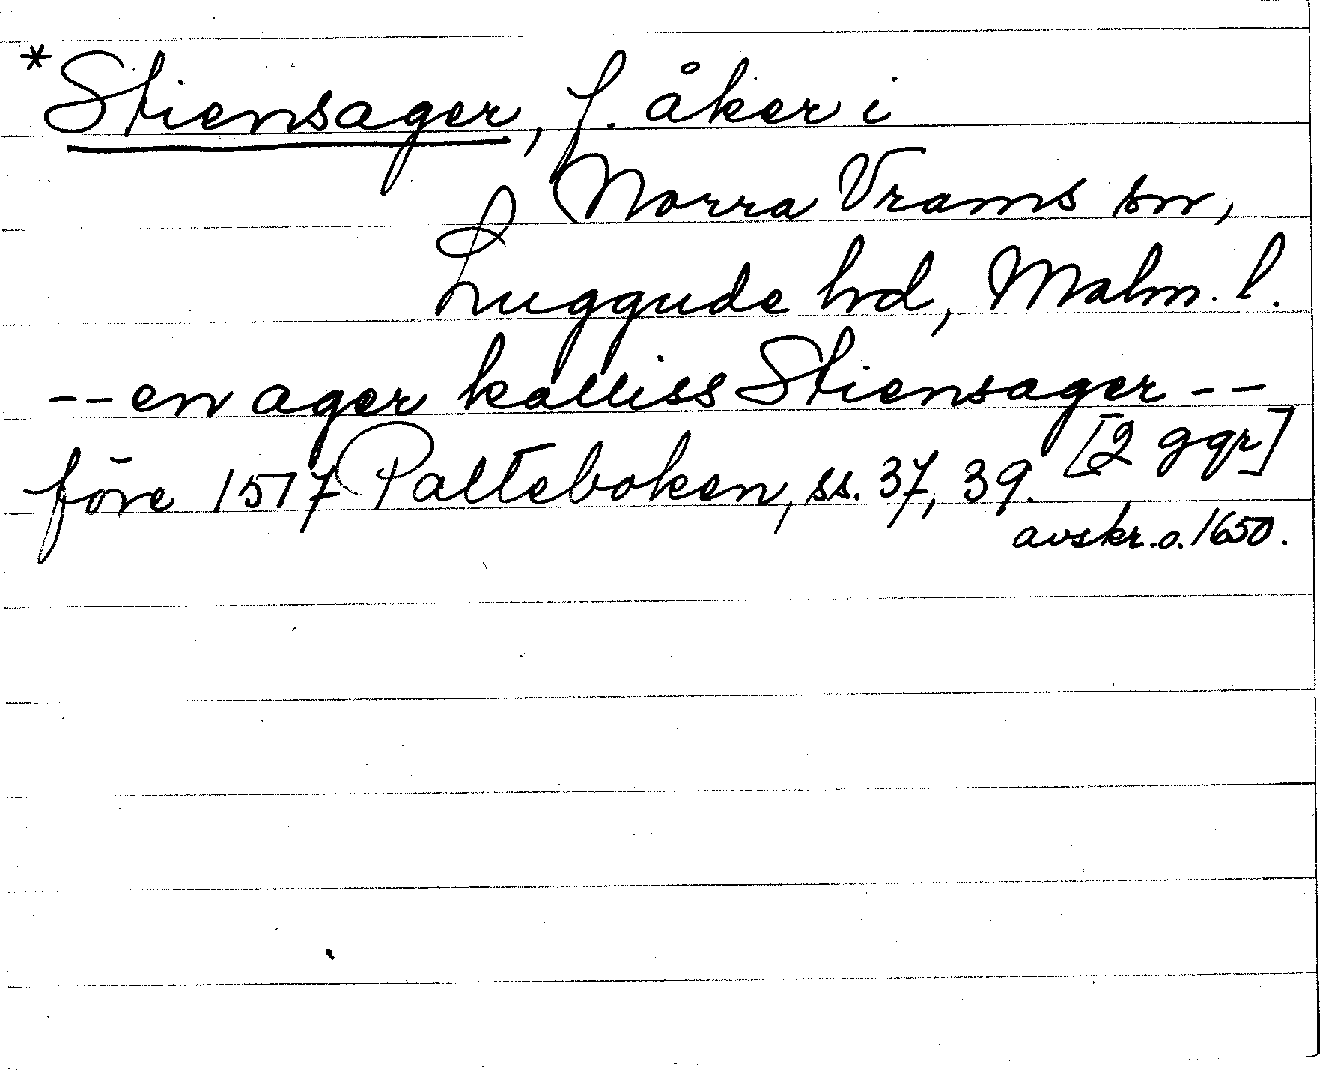 *Stiensager, f. åker i
Norra Vrams sn,
Luggude hrd, Malm. l.
-- en ager kalliss Stiensager --
före 1517 Palteboken, ss. 37, 39. [2 ggr]
avskr. o. 1650.